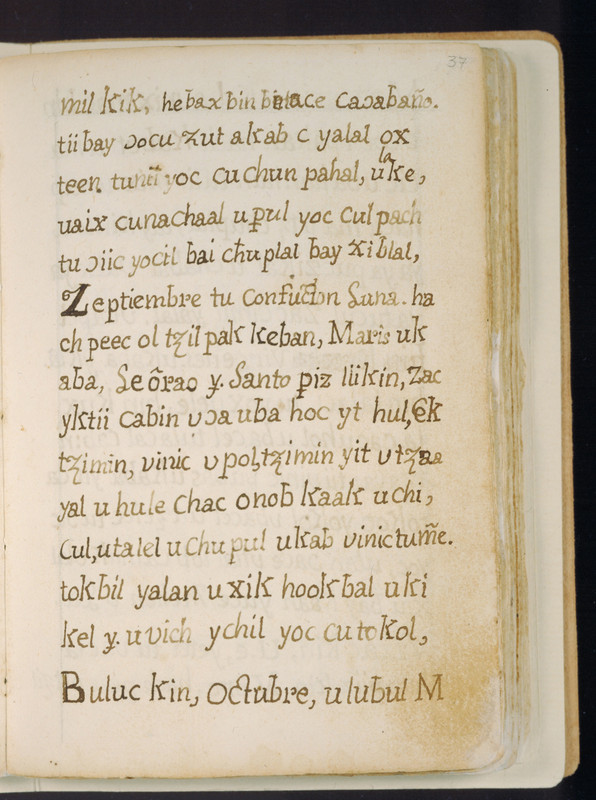 37
mil kik, hebax bin betace caɔabaño.
tii bay ɔocu zut akab c yalal ox
teen yoc cu chun pahal, u la ke,
uaix cunachaal upul yoc Culpach
tu ɔiic yocil bai chuplal bay xiblal,
Zeptiembre tu Luna. ha
ch peec ol tzil pak keban, Maris uk
aba, y. Santo piz lükin, Zac
yktii cabin vɔa uba hoc yt hul, ek
tzimin, vinic v pol, tzimin yit v
yal u hule Chac onob kaak uchi,
Cul, utalel u Chupul ukab vinictum̃e.
tokbil yalan uxik hookbal uki
kel y. u vich ychil yoc cu tokol,
Buluc kin, Octubre, ulubul M